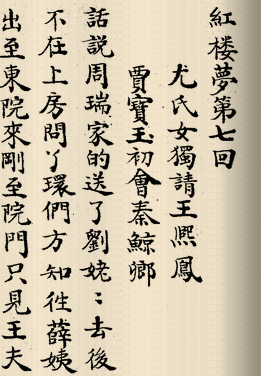 紅楼夢第七回
尤氏女獨請王熈鳳
賈寶玉初會秦鯨卿
話説周瑞家的送了劉姥〻去後
不在上房問了環們方知徃薛姨
出至東院來剛至院門只見王夫